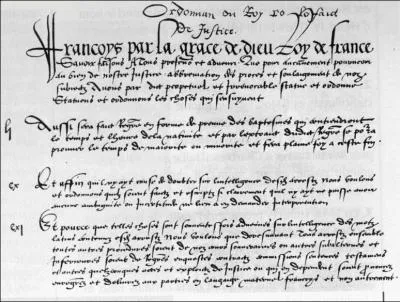 Ordonnan du Roy
De Justice.
Francoys par la grace de dieu Roy de france
Scavoir faisons A tous presens et advenir Que pour aucunement pourveoir
au bien de nostre Justice abbreviation des proces et soulagement de noz
subiectz Avons par edict perpetuel et Irrevocable statue et ordonne
Statuons et ordonnons les choses qui sensuyvent
li Aussi sera faict Regre en forme de preuve des baptesmes qui contiendront
le temps et lheure de la nativite et par lextraict dudict Regre se pora
prouver le temps de majorite ou minorite et sera plaine foy a ceste fin.
cx Et affin quil ny ayt cause de doubter sur lintelligence desd arrestz Nous voulons
et ordonnons quilz soient faictz et escriptz si clairement quil ny ayt ne puisse avoir
aucune ambiguite ou incertitude ne lieu a en demander Interpretation
cxi Et pource que telles choses sont souventesfois advenues sur lintelligence des motz
latins contenuz esd arrestz Nous voulons que doresnavant Tous arrestz ensemble
toutes autres procedures soient de noz cours souveraines ou autres subalternes et
Inferieures soient de Regres enquestes contractz commissions sentences testamens
et autres quelzconques actes et exploictz de Justice ou qui en deppendent soient prononcez
enregrez et delivrez aux parties en langage maternel francoys et non autrement.